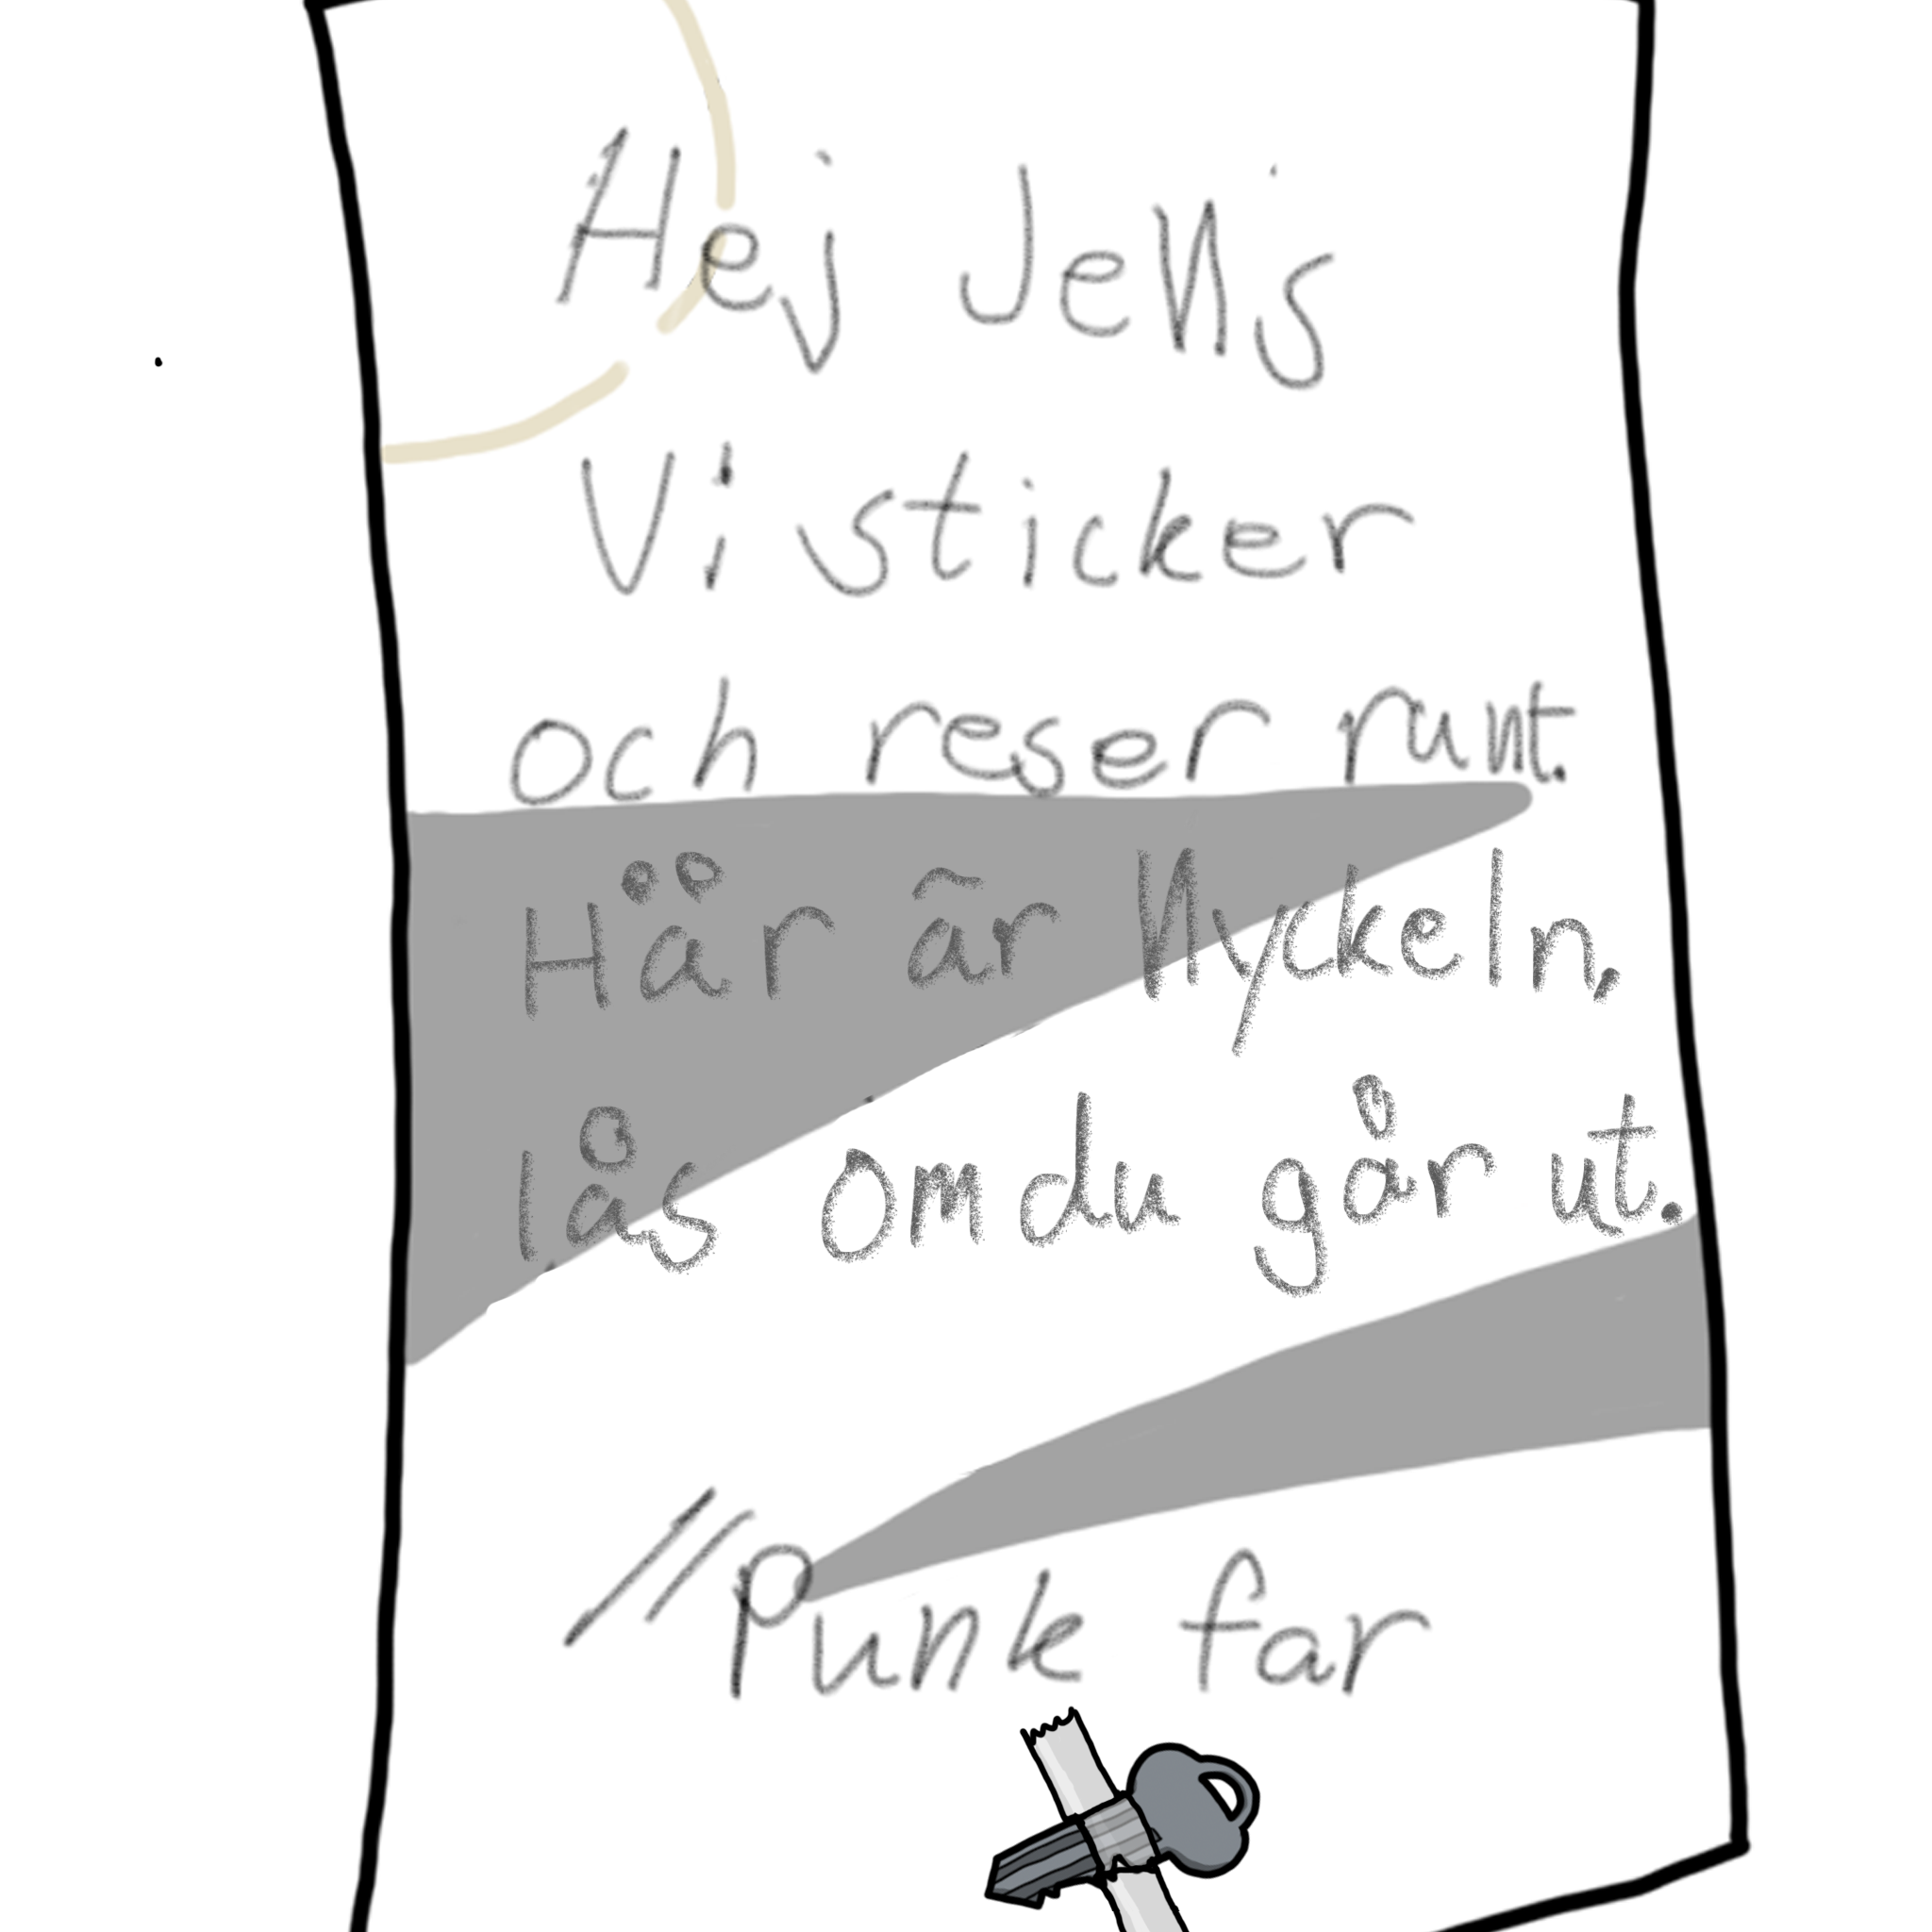 Hej Jens
Vi sticker
och reser runt.
Här är Nyckeln,
lås om du går ut.
//Punk far